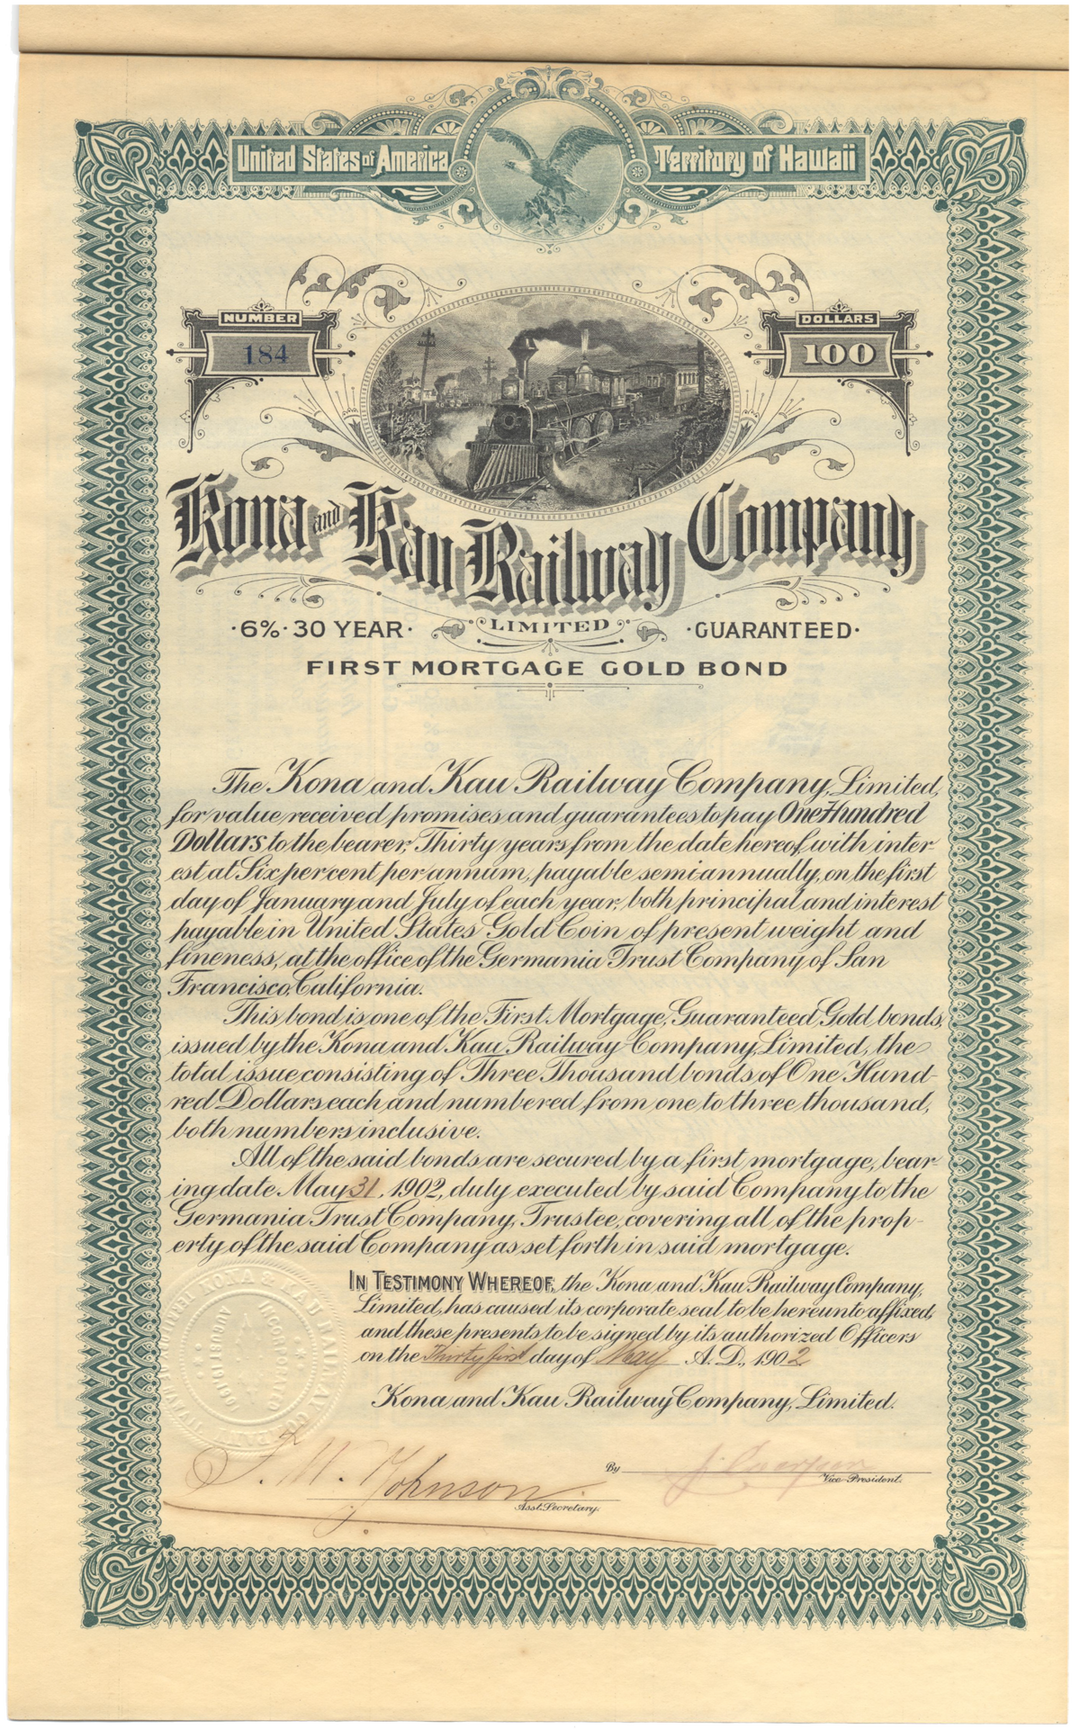 United States of America
Territory of Hawaii
NUMBER
184
DOLLARS
100
Kona and Kau Railway Company
LIMITED
·6%·30 YEAR·
·GUARANTEED·
FIRST MORTGAGE GOLD BOND
The Kona and Kau Railway Company, Limited,
for value received promises and guarantees to pay One Hundred
Dollars to the bearer, Thirty years from the date hereof with inter-
est at Six per cent per annum, payable semiannually, on the first
day of January and July of each year, both principal and interest
payable in United States Gold Coin of present weight and
fineness, at the office of the Germania Trust Company of San
Francisco, California.
This bond is one of the First Mortgage, Guaranteed, Gold bonds,
issued by the Kona and Kau Railway Company, Limited, the
total issue consisting of Three Thousand bonds of One Hund-
red Dollars each and numbered from one to three thousand,
both numbers inclusive.
All of the said bonds are secured by a first mortgage, bear-
ing date May 31, 1902, duly executed by said Company to the
Germania Trust Company, Trustee, covering all of the prop-
erty of the said Company as set forth in said mortgage.
IN TESTIMONY WHEREOF, the Kona and Kau Railway Company,
Limited, has caused its corporate seal to be hereunto affixed,
and these presents to be signed by its authorized Officers
on the Thirty first day of May A.D., 1902
Kona and Kau Railway Company, Limited.
KONA & KAU RAILWAY COMPANY
INCORPORATED
AUGUST
Johnson
Asst. Secretary.
By
Vice-President.